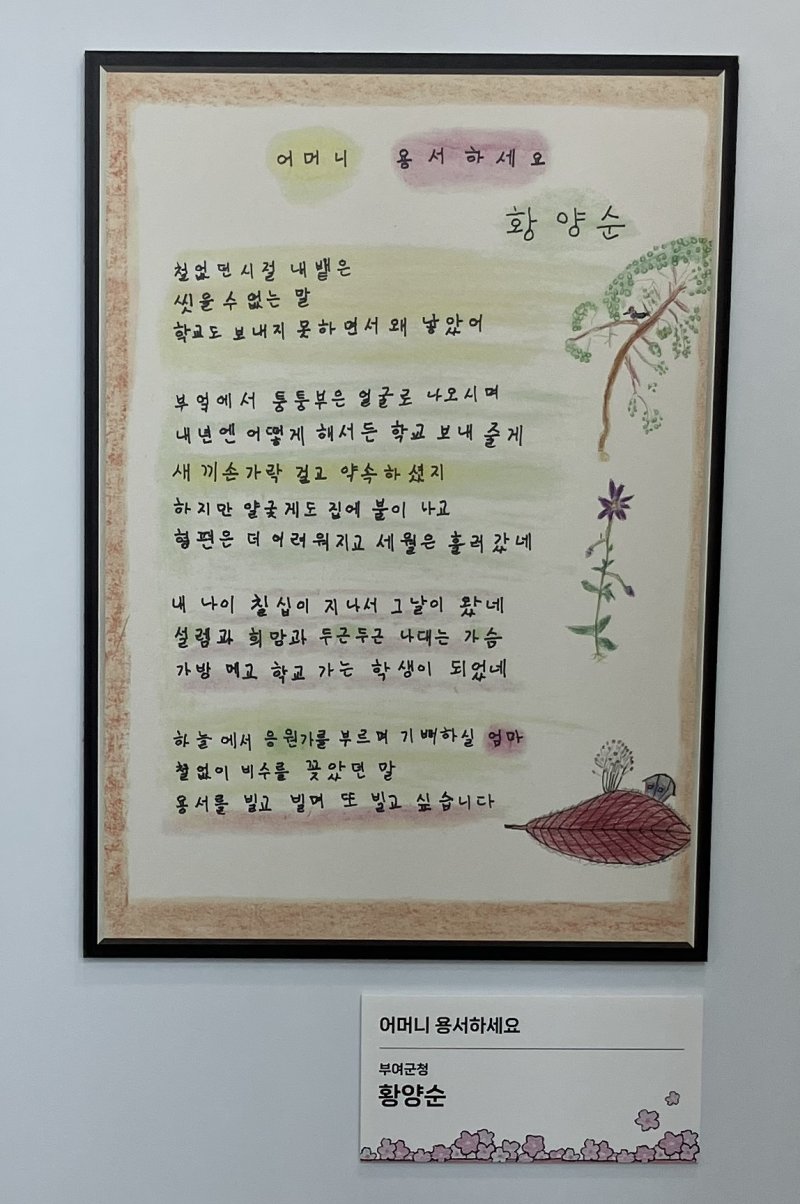 어머니 용서하세요
황양순
철없던시절 내뱉은
씻을 수 없는 말
학교도 보내지 못하면서 왜 낳았어
부엌에서 퉁퉁부은 얼굴로 나오시며
내년엔 어떻게 해서든 학교 보내 줄게
새끼손가락 걸고 약속하셨지
하지만 얄궂게도 집에 불이 나고
형편은 더 어려워지고 세월은 흘러갔네
내 나이 칠십이 지나서 그날이 왔네
설렘과 희망과 두근두근 나대는 가슴
가방 메고 학교 가는 학생이 되었네
하늘에서 응원가를 부르며 기뻐하실 엄마
철없이 비수를 꽂았던 말
용서를 빌고 빌며 또 빌고 싶습니다
어머니 용서하세요
부여군청
황양순